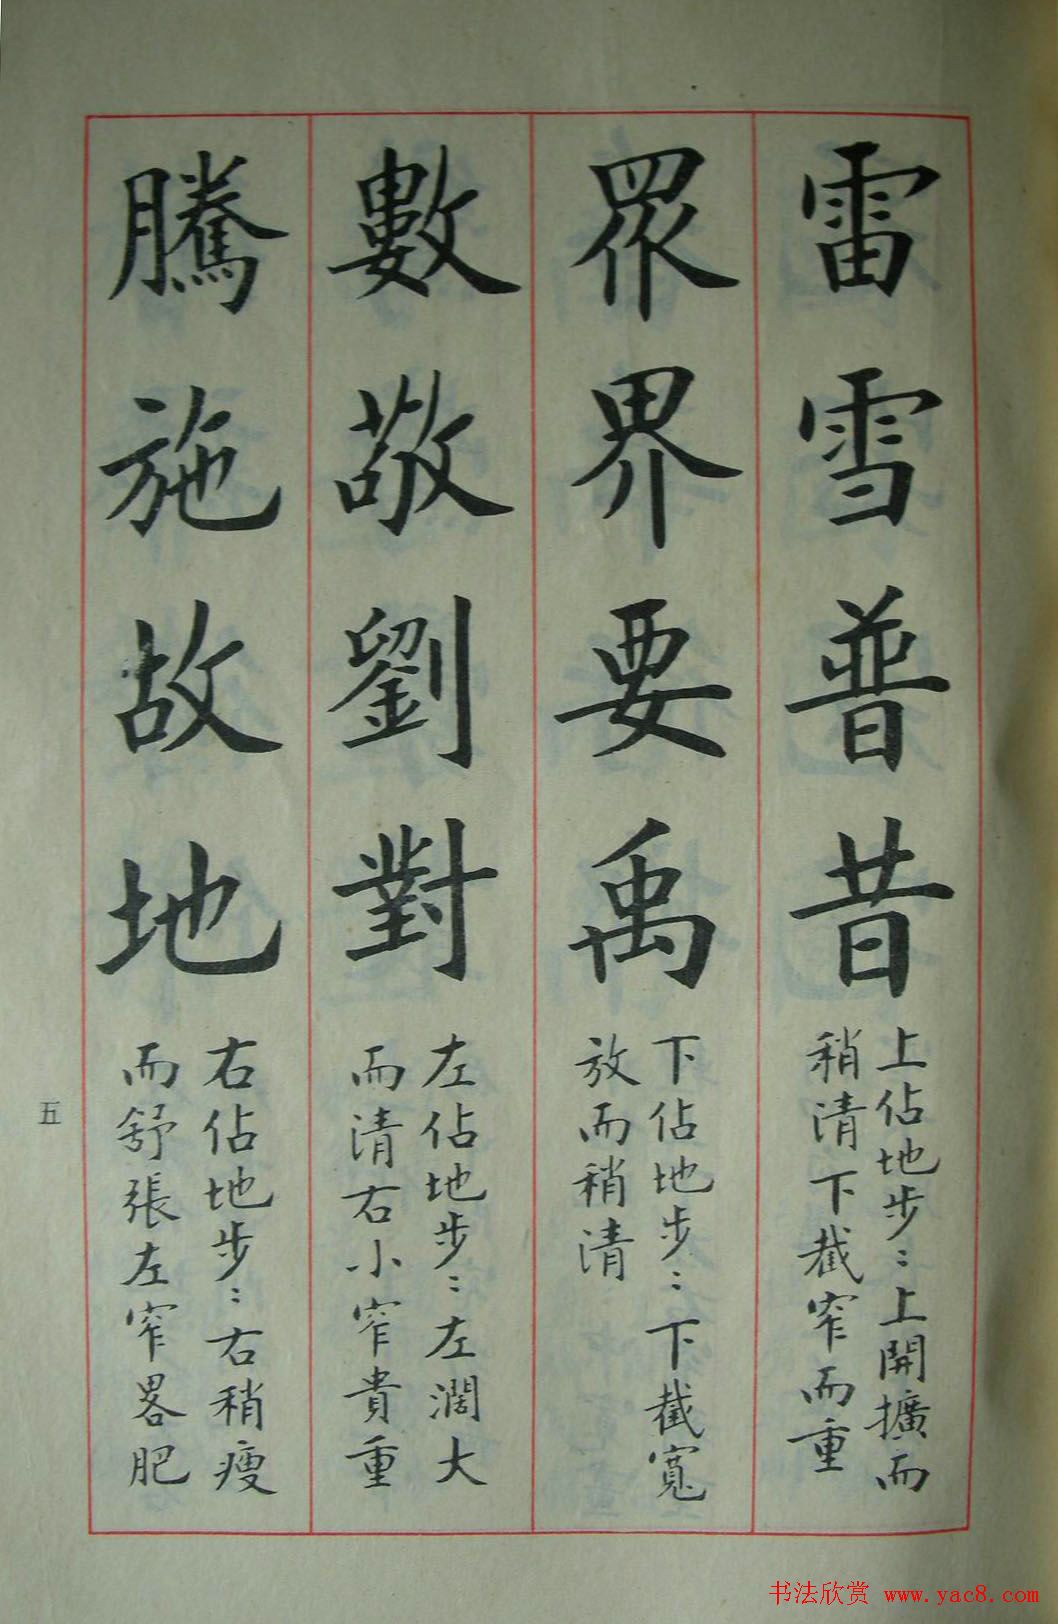 雷雪普昔
上佔地步：上開擴而
稍清下截窄而重
眾界要禹
下佔地步：下截寬
放而稍清
數敬劉對
左佔地步：左濶大
而清右小窄貴重
騰施故地
右佔地步：右稍瘦
而舒張左窄畧肥
五
书法欣赏 www.yac8.com